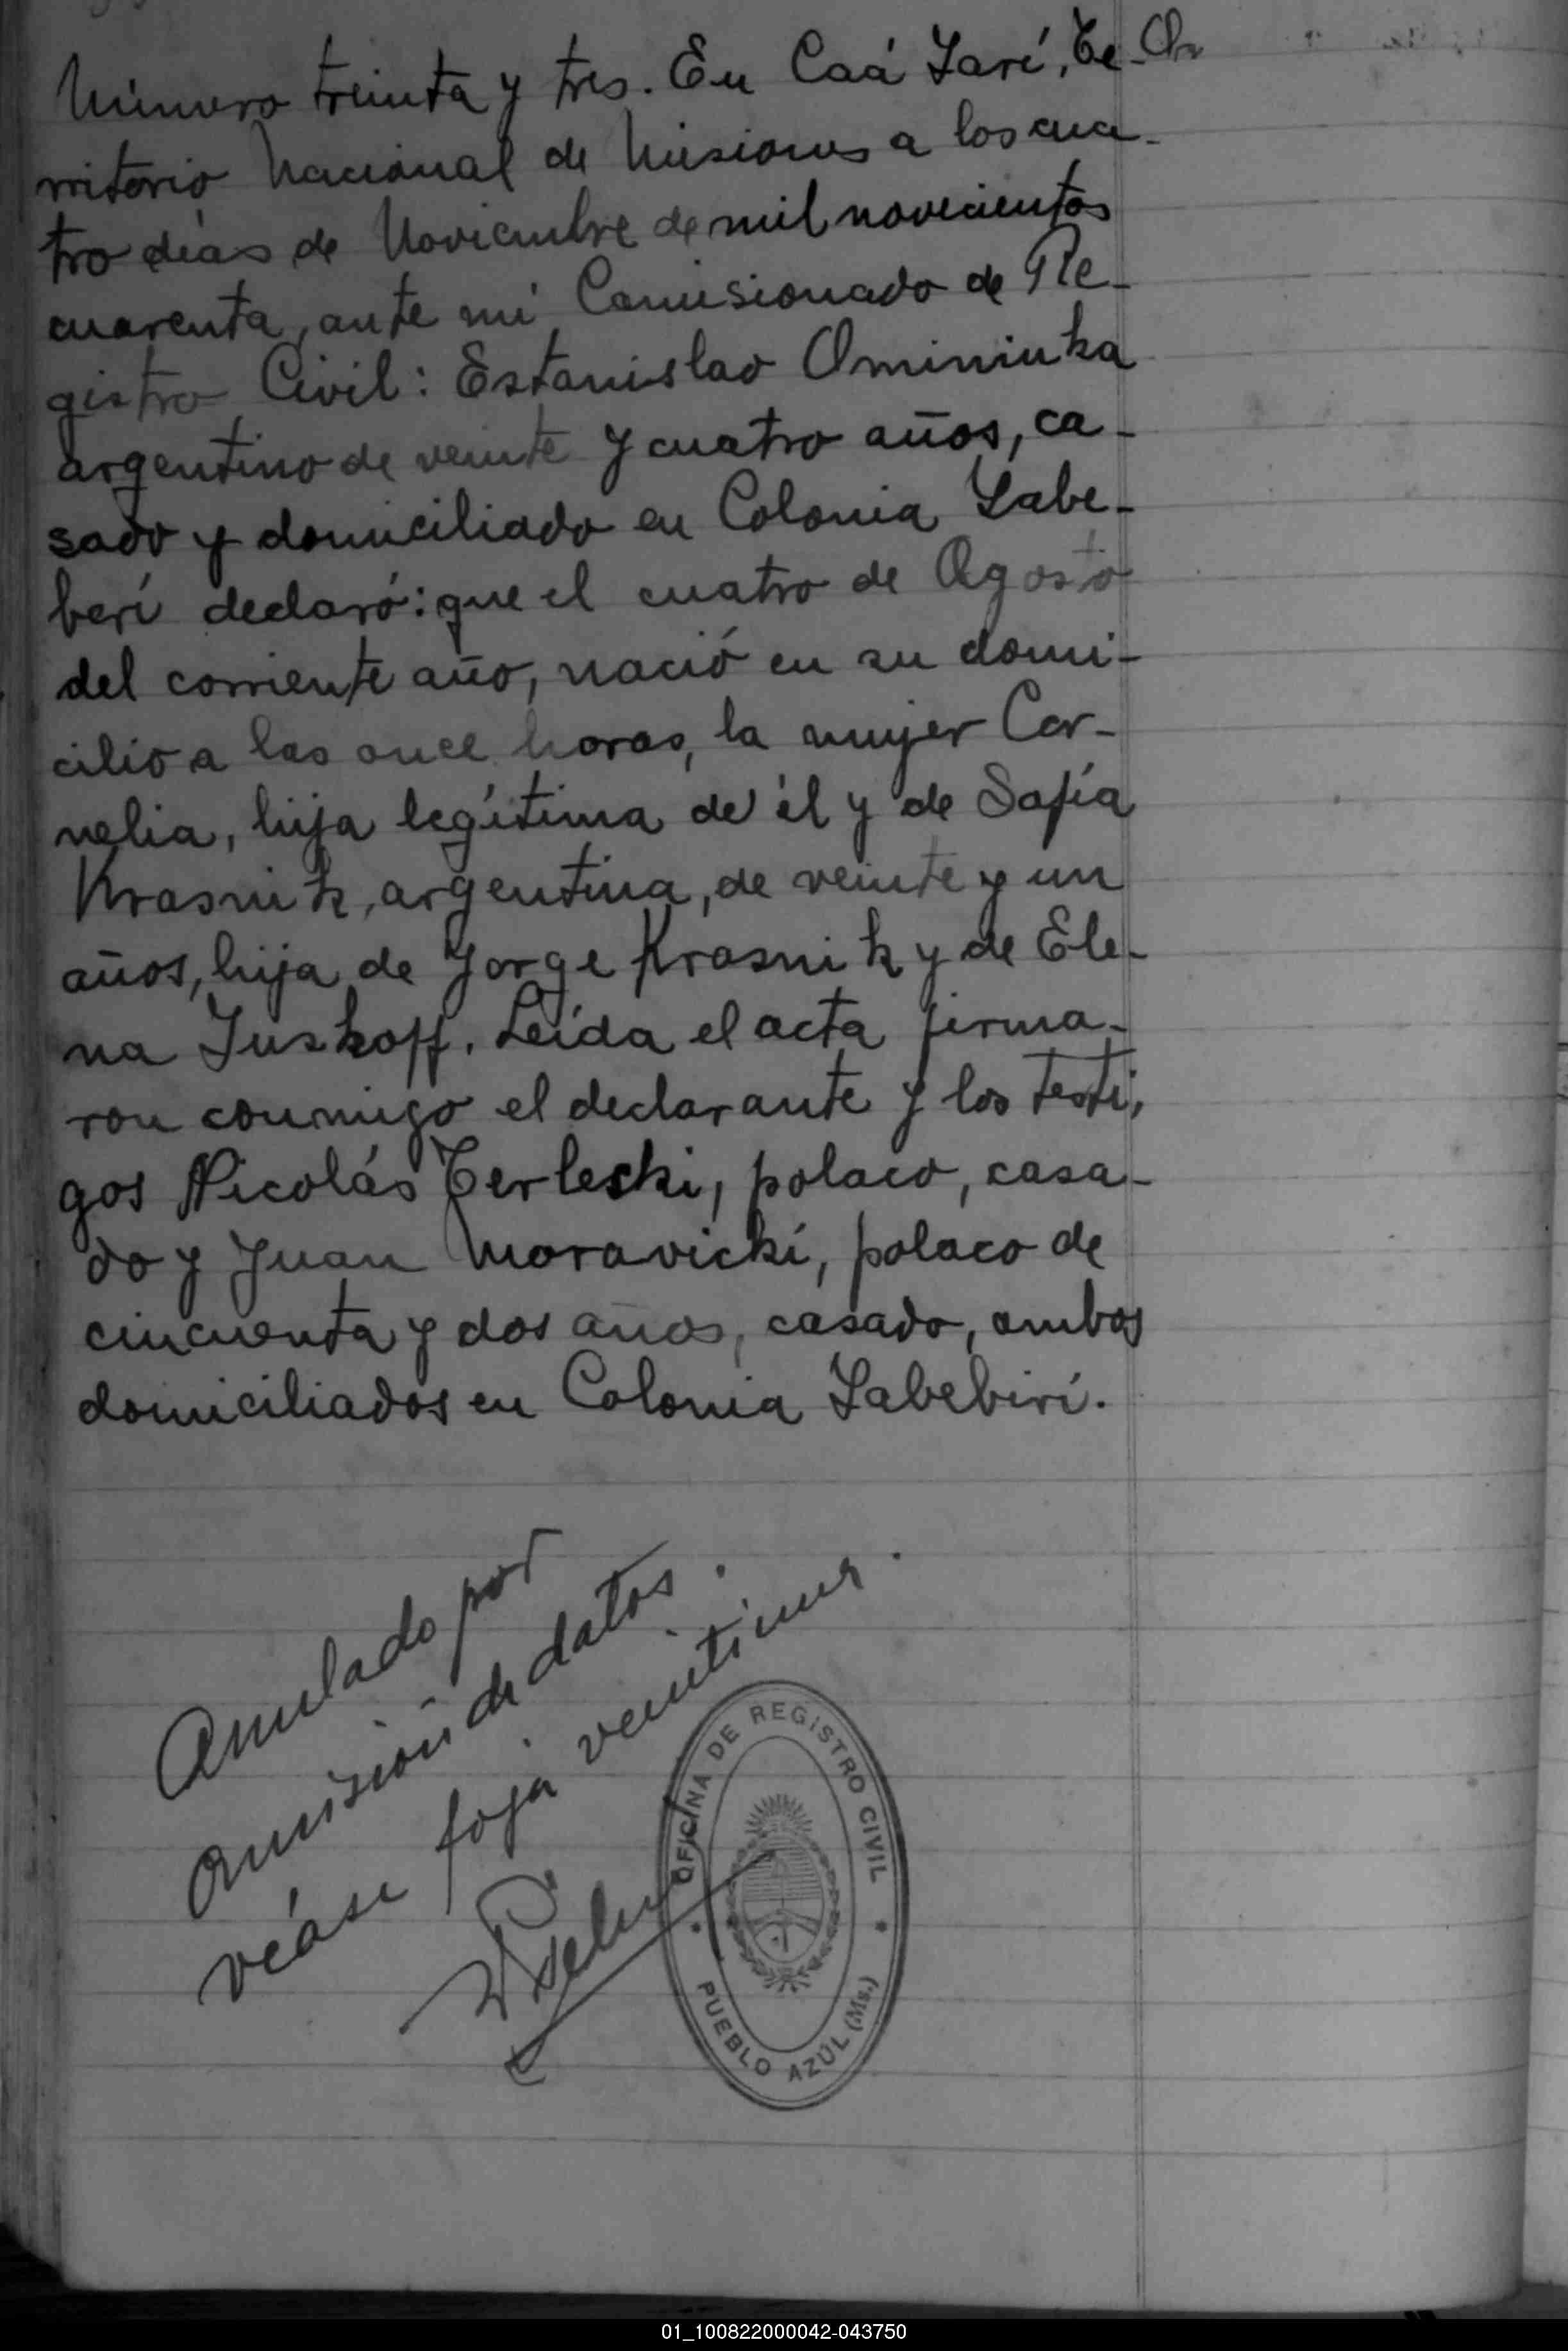 Número treinta y tres. En Caá Yarí, Te-
rritorio Nacional de Misiones a los cua-
tro días de Noviembre de mil novecientos
cuarenta, ante mí Comisionado de Re-
gistro Civil: Estanislao Ominiuka
argentino de veinte y cuatro años, ca-
sado y domiciliado en Colonia Yabe-
berí declaró: que el cuatro de Agosto
del corriente año, nació en su domi-
cilio a las once horas, la mujer Cor-
nelia, hija legítima de él y de Sofía
Krasnik, argentina, de veinte y un
años, hija de Jorge Krasnik y de Ele-
na Juskoff. Leída el acta firma-
ron conmigo el declarante y los testi,
gos Nicolás Terleski, polaco, casa-
do y Juan Moravicki, polaco de
cincuenta y dos años, casado, ambos
domiciliados en Colonia Yabebirí.
Anulado por
omisión de datos.
véase foja
OFICINA DE REGISTRO CIVIL
PUEBLO AZUL (Ms.)
01_100822000042-043750